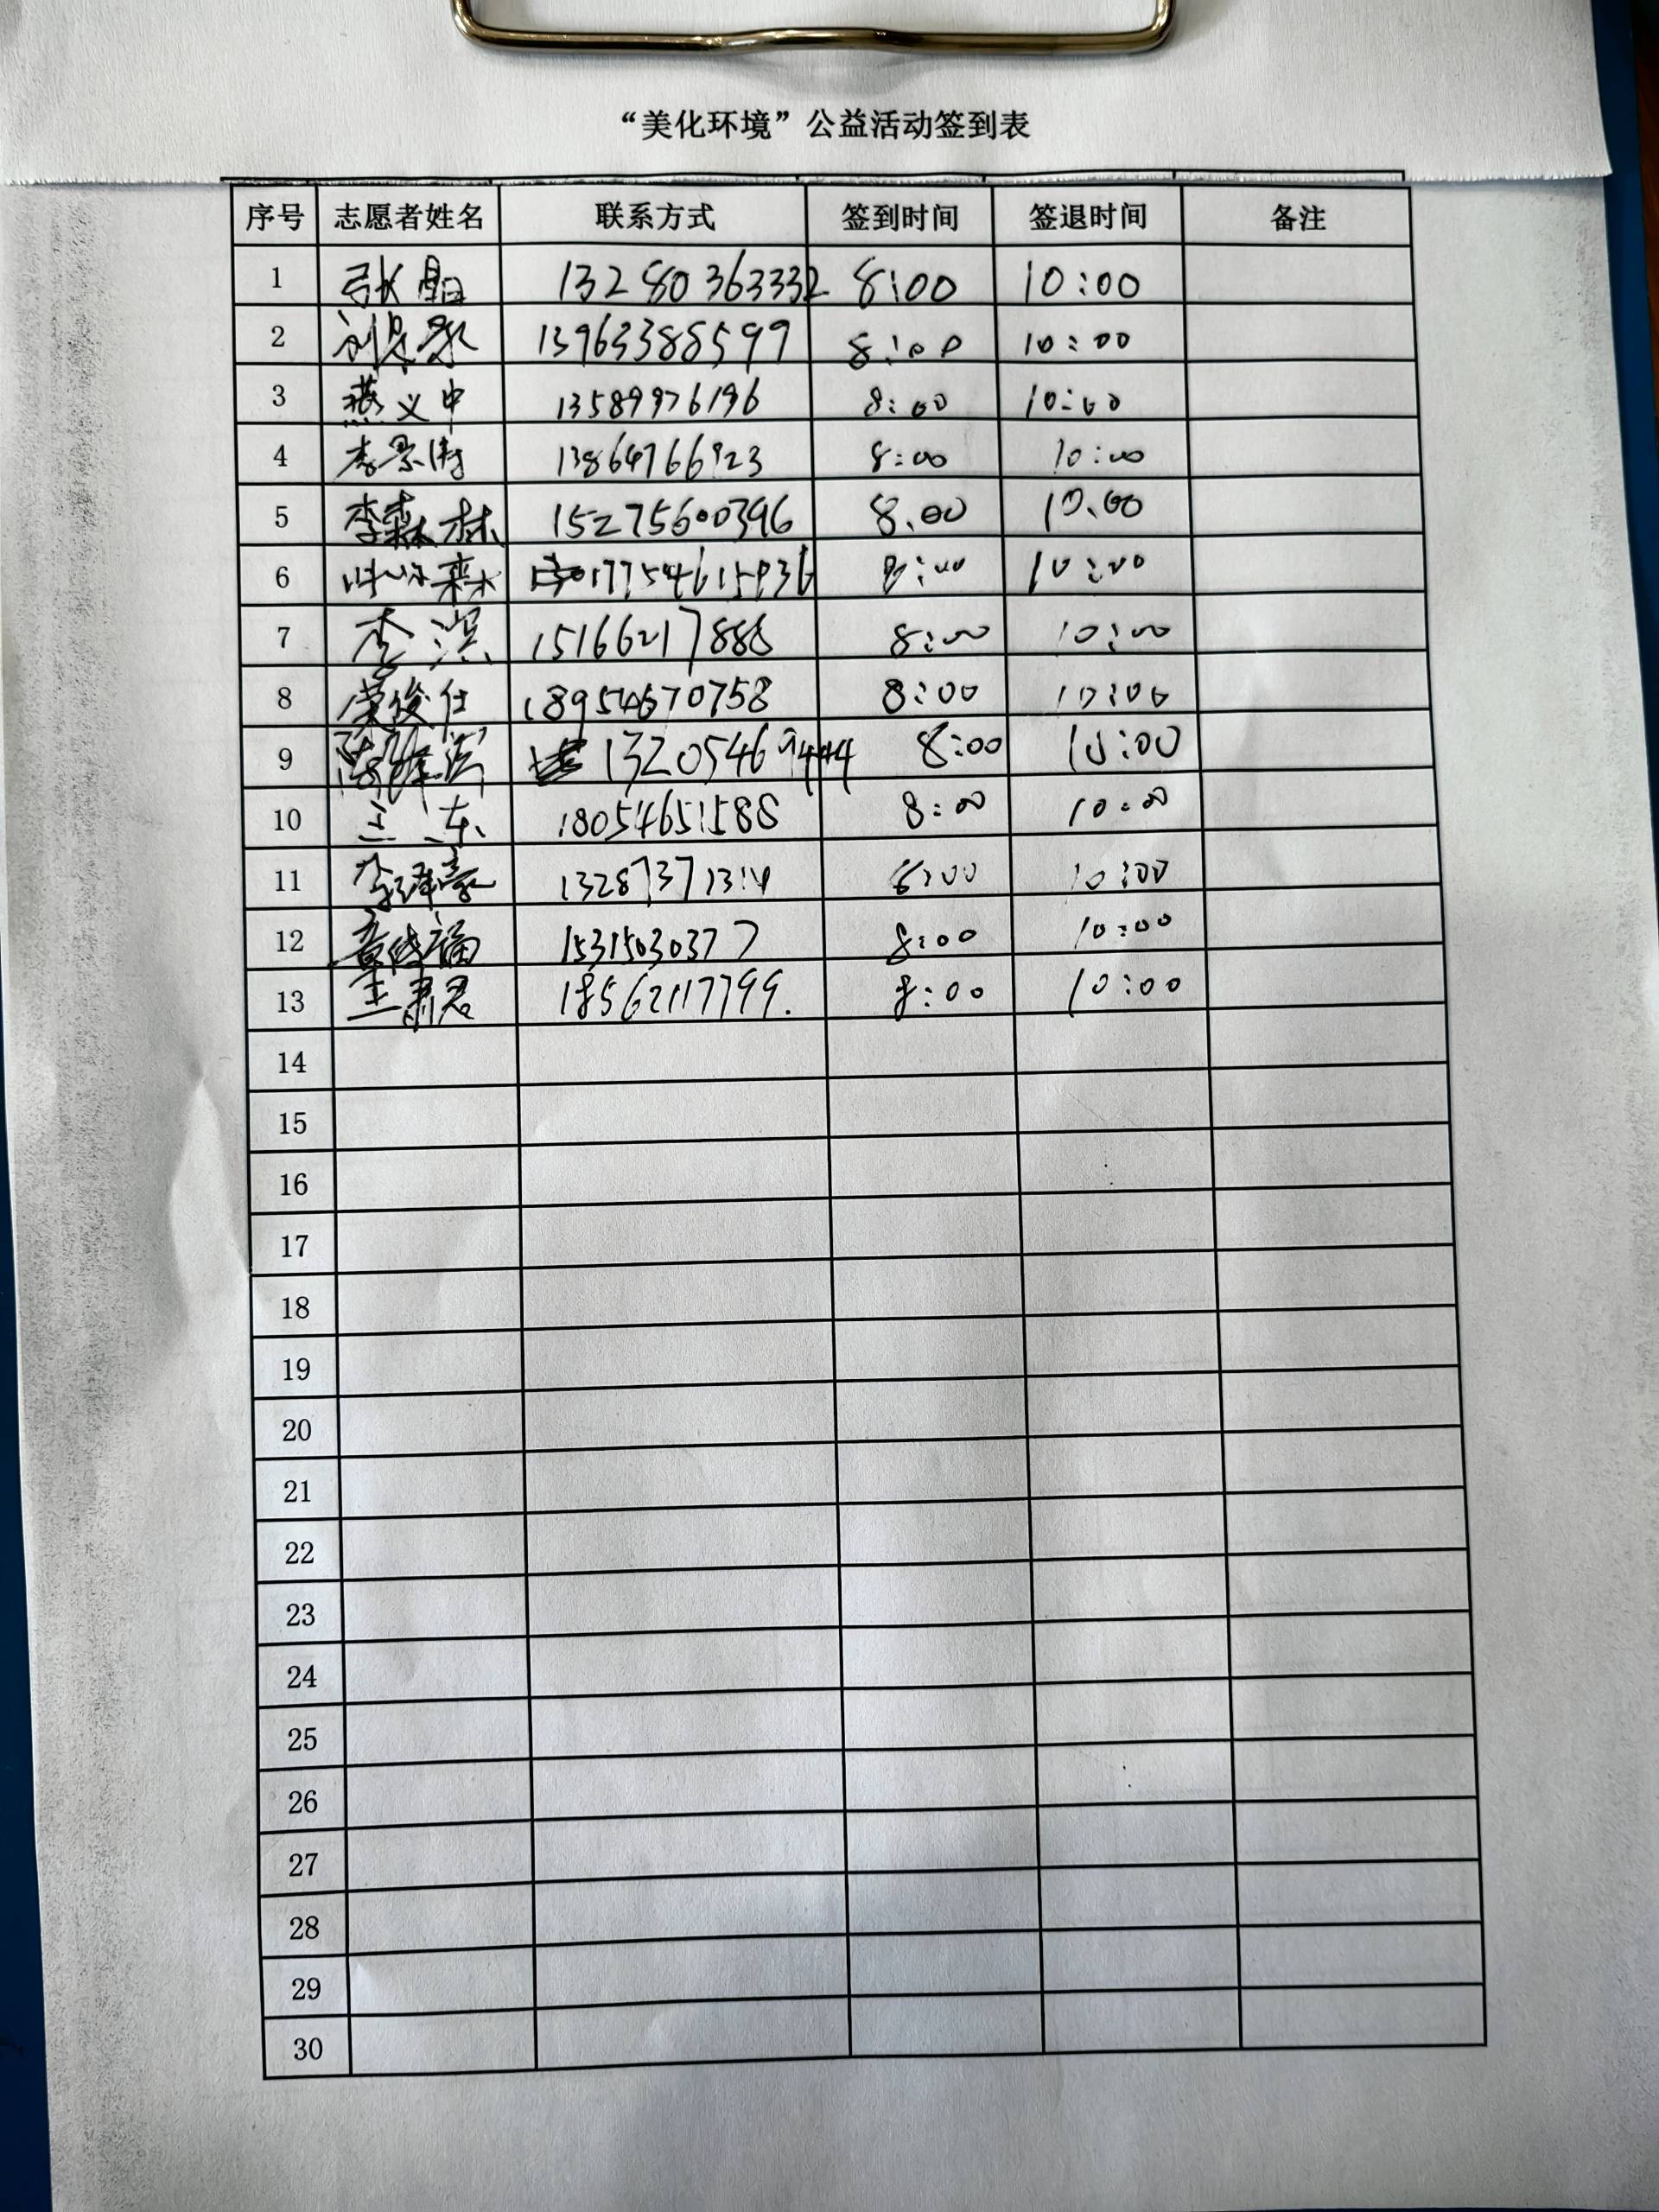 “美化环境”公益活动签到表
序号 志愿者姓名 联系方式 签到时间 签退时间 备注
1 张晶 13280363332 8:00 10:00
2 13963388599 8:00 10:00
3 燕义中 13589976196 8:00 10:00
4 李景涛 13864766923 8:00 10:00
5 李森林 15275600396 8:00 10:00
6 8:00 10:00
7 李滨 15166217888 8:00 10:00
8 荣俊仕 18954670758 8:00 10:00
9 13205469444 8:00 10:00
10 王东 18054651588 8:00 10:00
11 李泽豪 13287371314 8:00 10:00
12 15315030377 8:00 10:00
13 王肃君 18562117799. 8:00 10:00
14
15
16
17
18
19
20
21
22
23
24
25
26
27
28
29
30